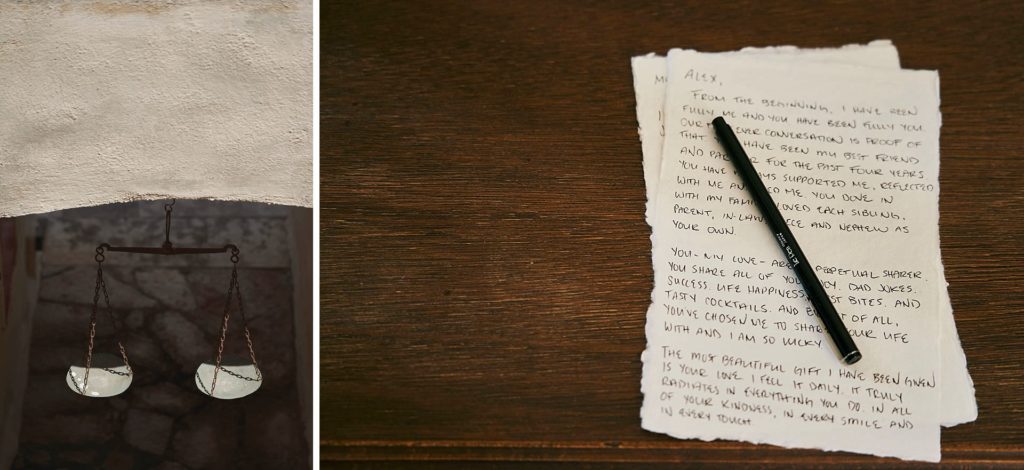 ALEX,
FROM THE BEGINNING, I HAVE BEEN
FULLY ME AND YOU HAVE BEEN FULLY YOU.
OUR EVER CONVERSATION IS PROOF OF
THAT HAVE BEEN MY BEST FRIEND
AND FOR THE PAST FOUR YEARS
YOU HAVE SUPPORTED ME, REFLECTED
WITH ME ME. YOU DOVE IN
WITH MY LOVED EACH SIBLING,
PARENT, AND NEPHEW AS
YOUR OWN.
YOU - MY LOVE - PERPETUAL SHARER.
YOU SHARE ALL OF JOY. DAD JOKES.
SUCCESS. LIFE HAPPINESS. BITES. AND
TASTY COCKTAILS. AND OF ALL,
YOU'VE CHOSEN ME TO YOUR LIFE
WITH AND I AM SO LUCKY.
THE MOST BEAUTIFUL GIFT I HAVE BEEN GIVEN
IS YOUR LOVE. I FEEL IT DAILY. IT TRULY
RADIATES IN EVERYTHING YOU DO. IN ALL
OF YOUR KINDNESS, IN EVERY SMILE AND
IN EVERY TOUCH.